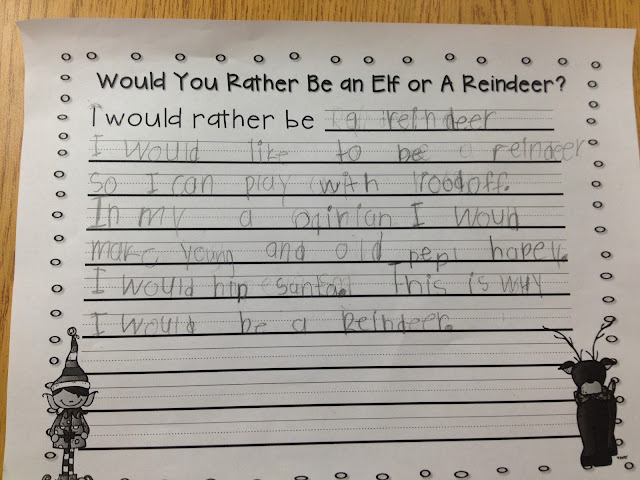 Would You Rather Be an Elf or A Reindeer?
I would rather be a reindeer
I would like to be a reindeer
so I can play with roodoff.
In my a opinian I woud
make young and old pepl hapey.
I would hlp santa. This is why
I would be a Reindeer.